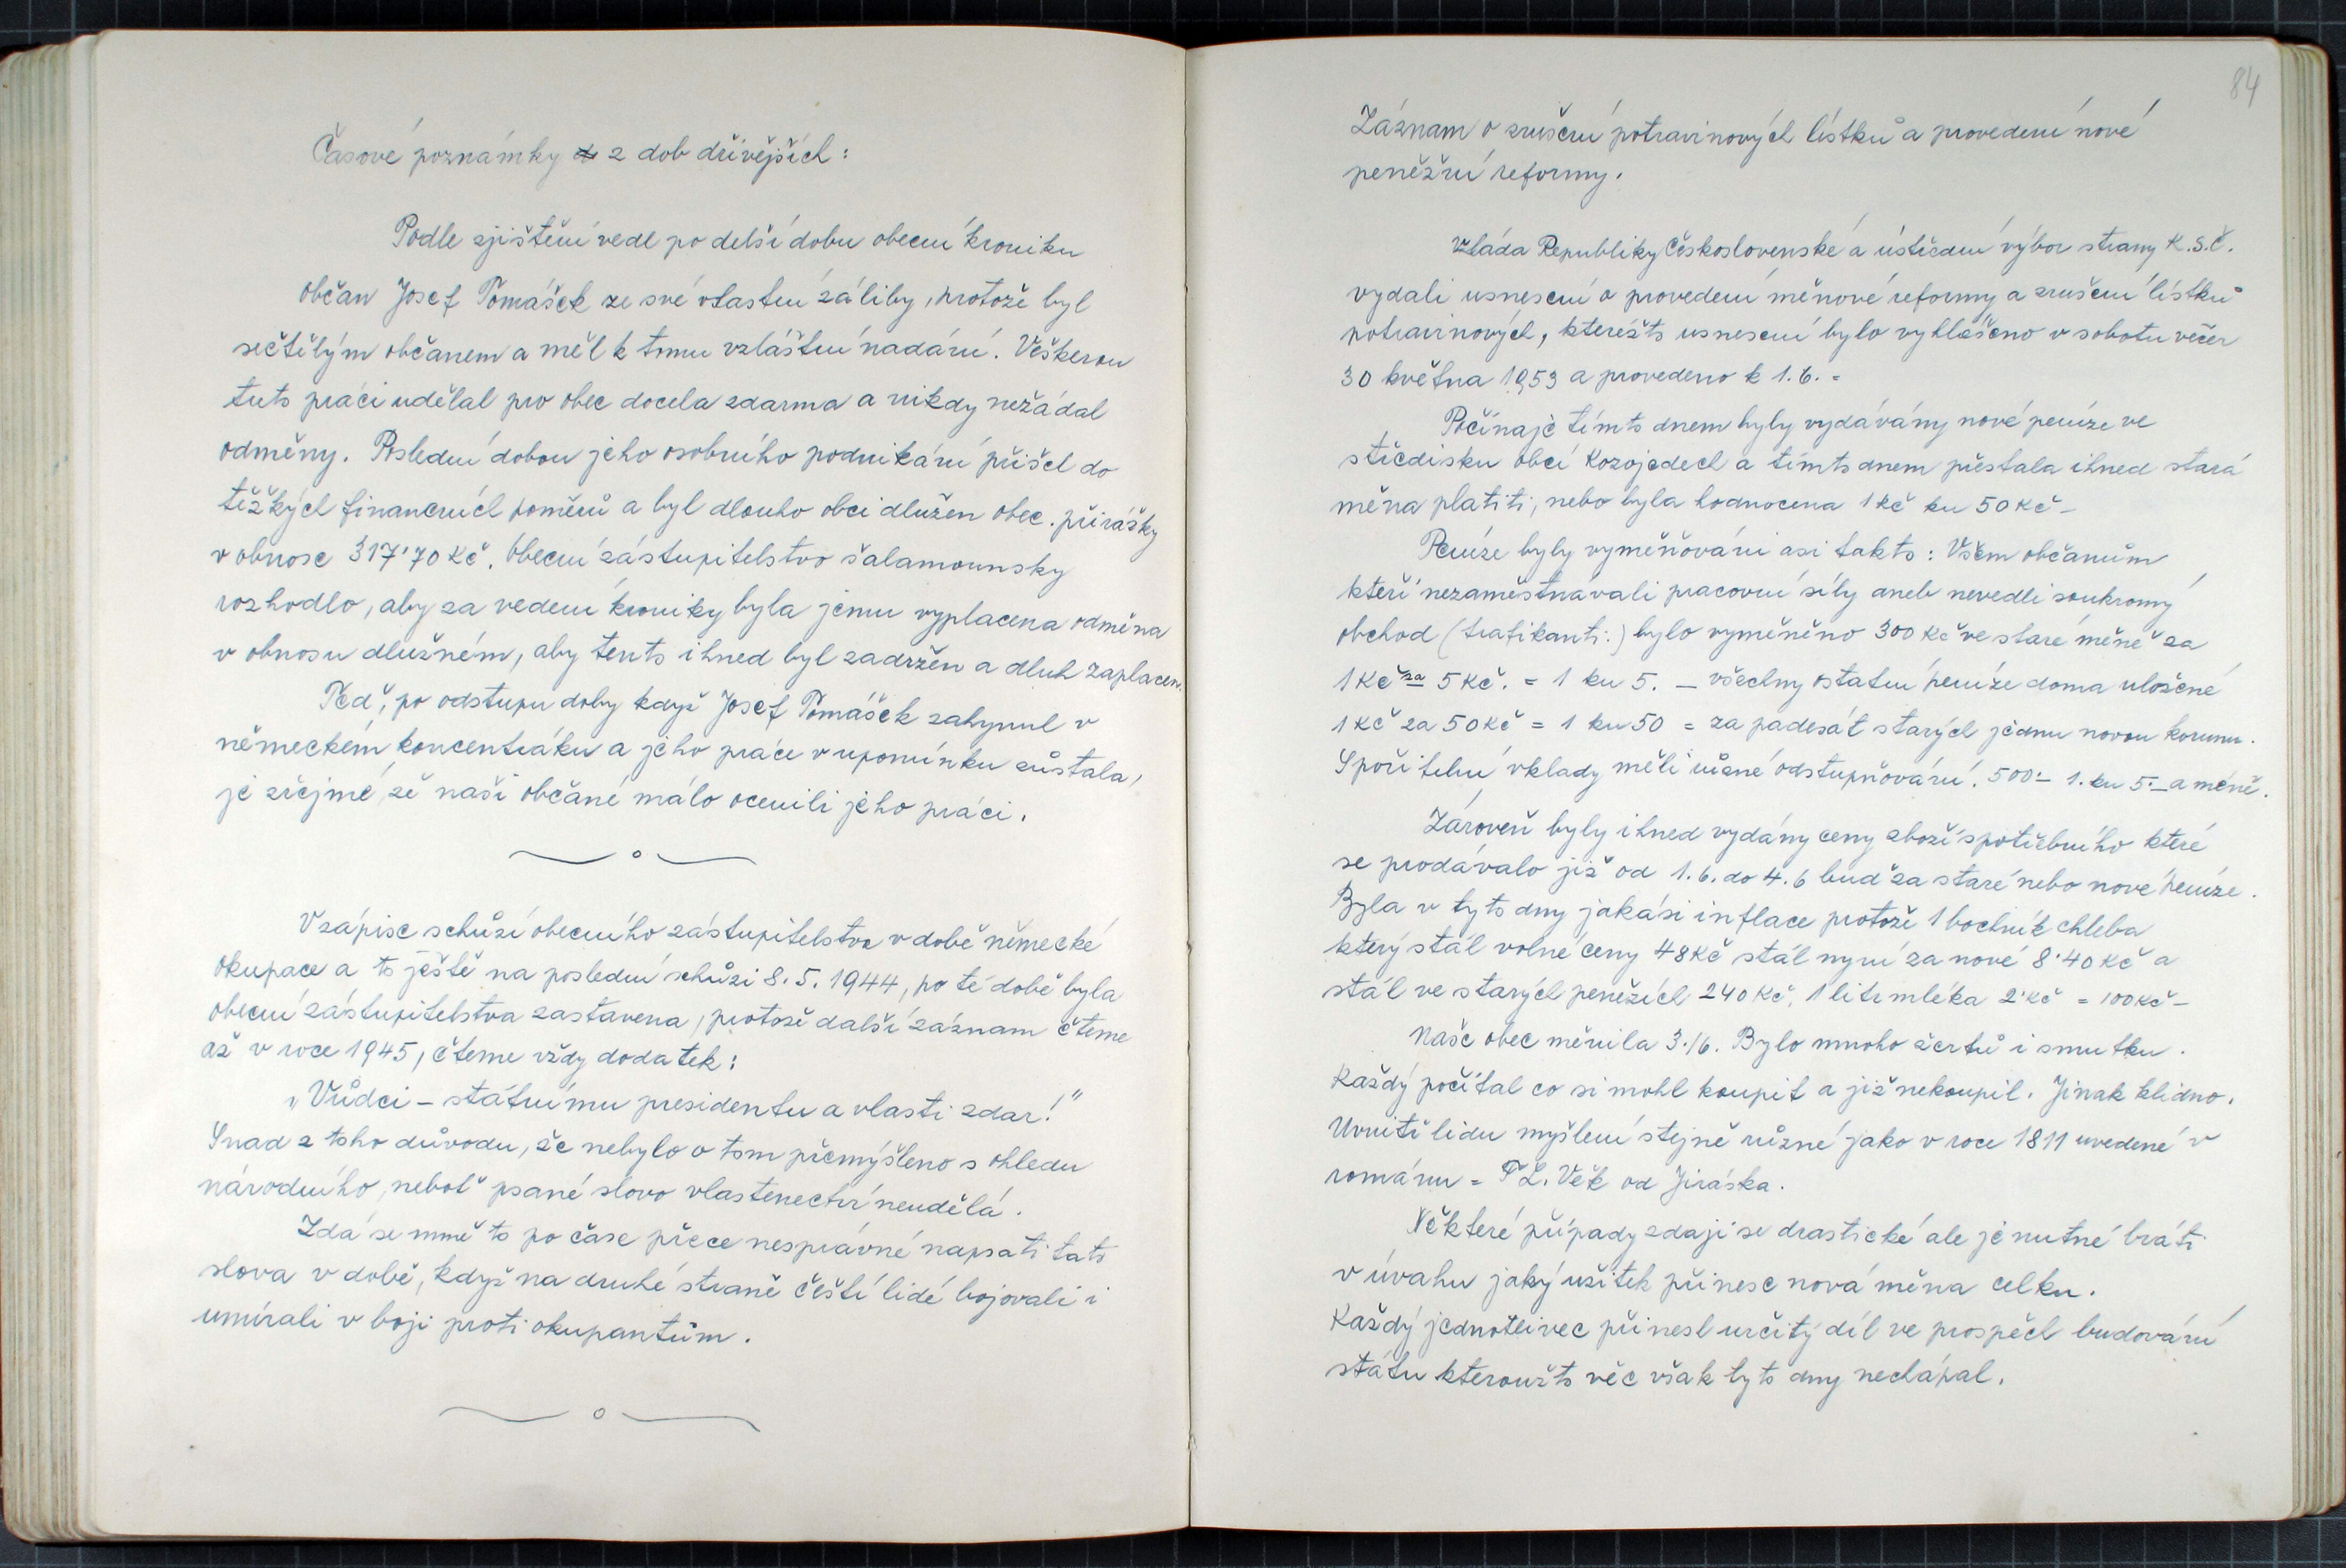 Časové poznámky z dob dřívějších:
Podle zjištění vedl po delší dobu obecní kroniku
občan Josef Tomášek ze své vlastní záliby, protože byl
sečtělým občanem a měl k tomu vzláštní nadání. Veškerou
tuto práci udělal pro obec docela zdarma a nikdy nežádal
odměny. Poslední dobou jeho osobního podnikání přišel do
těžkých financních poměrů a byl dlouho obci dlužen obec. přirážky
v obnose 317'70 Kč. Obecní zástupitelstvo šalamounsky
rozhodlo, aby za vedení kroniky byla jemu vyplacena odměna
v obnosu dlužném, aby tento ihned byl zadržen a dluh zaplacen.
Teď, po odstupu doby když Josef Tomášek zahynul v
německém koncentráku a jeho práce v upomínku zůstala,
je zřejmé, že naši občané málo ocenili jeho práci.
V zápise schůzí obecního zástupitelstva v době německé
okupace a to ještě na poslední schůzi 8.5.1944, po té době byla
obecní zástupitelstva zastavena, protože další záznam čteme
až v roce 1945, čteme vždy dodatek:
„Vůdci – státnímu presidentu a vlasti zdar!"
Snad z toho důvodu, že nebylo o tom přemýšleno s ohledu
národního, neboť psané slovo vlastenectví neudělá.
Zdá se mně to po čase přece nesprávné napsati tato
slova v době, když na druhé straně čeští lidé bojovali i
umírali v boji proti okupantům.
84
Záznam o zrušení potravinových lístků a provedení nové
peněžní reformy.
Vláda Republiky Československé a ústřední výbor strany K.S.Č.
vydali usnesení o provedení měnové reformy a zrušení lístků
potravinových, kteréžto usnesení bylo vyhlášeno v sobotu večer
30 května 1953 a provedeno k 1.6. =
Počínaje tímto dnem byly vydávány nové peníze ve
středisku obcí Kozojedech a tímto dnem přestala ihned stará
měna platiti, nebo byla hodnocena 1 kč ku 50 Kč –
Peníze byly vyměňováni asi takto: Všem občanům
kteří nezaměstnávali pracovní síly aneb nevedli soukromý
obchod (trafikanti:) bylo vyměněno 300 Kč ve staré měně za
1 Kč za 5 Kč. = 1 ku 5. – všechny ostatní peníze doma uložené
1 Kč za 50 Kč = 1 ku 50 = za padesát starých jednu novou korunu.
Spořitelní vklady měli různé odstupňování. 500.– 1. ku 5.– a méně.
Zároveň byly ihned vydány ceny zboží spotřebního které
se prodávalo již od 1.6. do 4.6 buď za staré nebo nové peníze.
Byla v tyto dny jakási inflace protože 1 bochník chleba
který stál volné ceny 48 Kč stál nyní za nové 8'40 Kč a
stál ve starých penězích 240 Kč, 1 litr mléka 2' Kč = 100 Kč –
Naše obec měnila 3./6. Bylo mnoho žertů i smutku.
Každý počítal co si mohl koupit a již nekoupil. Jinak klidno.
Uvnitř lidu myšlení stejně různé jako v roce 1811 uvedené v
románu = F L. Věk od Jiráska.
Některé případy zdají se drastické ale je nutné bráti
v úvahu jaký užitek přinese nová měna celku.
Každý jednotlivec přinesl určitý díl ve prospěch budování
státu kteroužto věc však tyto dny nechápal.